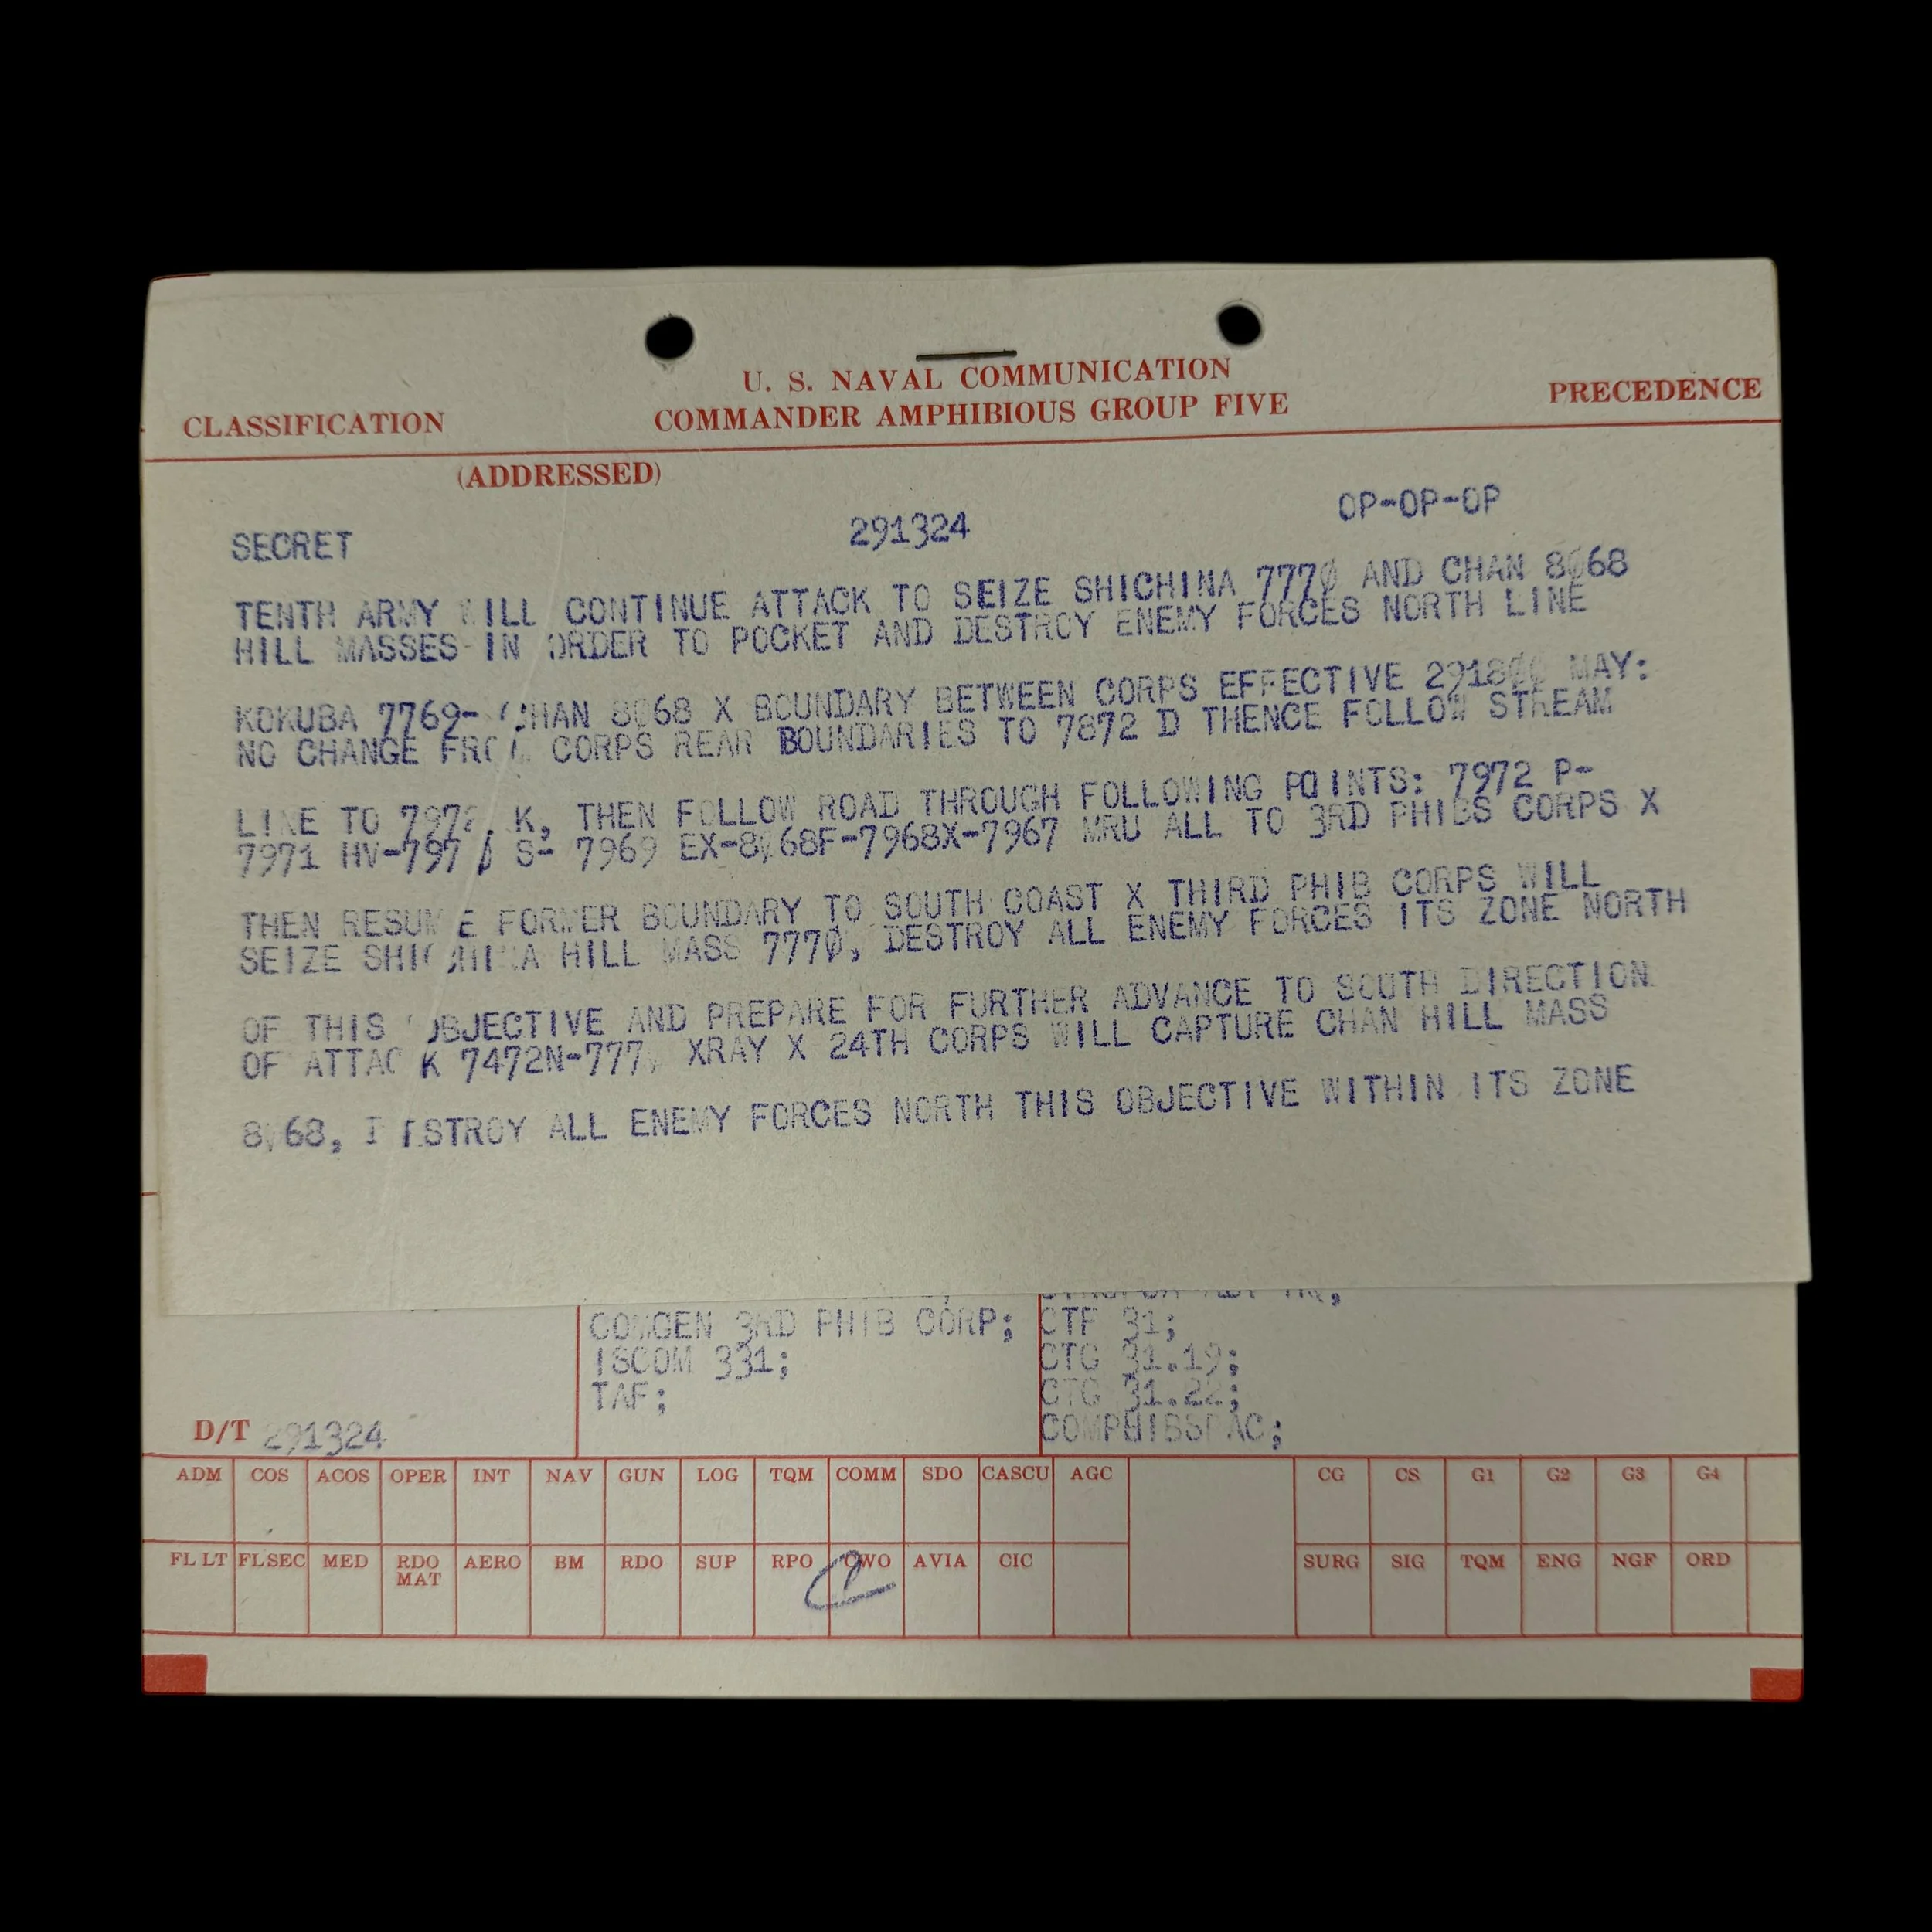 U. S. NAVAL COMMUNICATION
COMMANDER AMPHIBIOUS GROUP FIVE
CLASSIFICATION PRECEDENCE
(ADDRESSED)
SECRET 291324 OP-OP-OP
TENTH ARMY WILL CONTINUE ATTACK TO SEIZE SHICHINA 777Ø AND CHAN 8Ø68
HILL MASSES IN ORDER TO POCKET AND DESTROY ENEMY FORCES NORTH LINE
KOKUBA 7769- CHAN 8Ø68 X BOUNDARY BETWEEN CORPS EFFECTIVE 2918ØØ MAY:
NO CHANGE FROM CORPS REAR BOUNDARIES TO 7872 D THENCE FOLLOW STREAM
LINE TO 7972 K, THEN FOLLOW ROAD THROUGH FOLLOWING POINTS: 7972 P-
7971 HV-797Ø S- 7969 EX-8Ø68F-7968X-7967 MRU ALL TO 3RD PHIBS CORPS X
THEN RESUME FORMER BOUNDARY TO SOUTH COAST X THIRD PHIB CORPS WILL
SEIZE SHICHINA HILL MASS 777Ø, DESTROY ALL ENEMY FORCES ITS ZONE NORTH
OF THIS OBJECTIVE AND PREPARE FOR FURTHER ADVANCE TO SOUTH DIRECTION
OF ATTACK 7472N-777Ø XRAY X 24TH CORPS WILL CAPTURE CHAN HILL MASS
8Ø68, DESTROY ALL ENEMY FORCES NORTH THIS OBJECTIVE WITHIN ITS ZONE
COMGEN 3RD PHIB CORP; CTF 31;
ISCOM 331; CTG 31.19;
TAF; CTG 31.22;
D/T 291324 COMPHIBSPAC;
ADM COS ACOS OPER INT NAV GUN LOG TQM COMM SDO CASCU AGC CG CS G1 G2 G3 G4
FL LT FL SEC MED RDO MAT AERO BM RDO SUP RPO CWO AVIA CIC SURG SIG TQM ENG NGF ORD